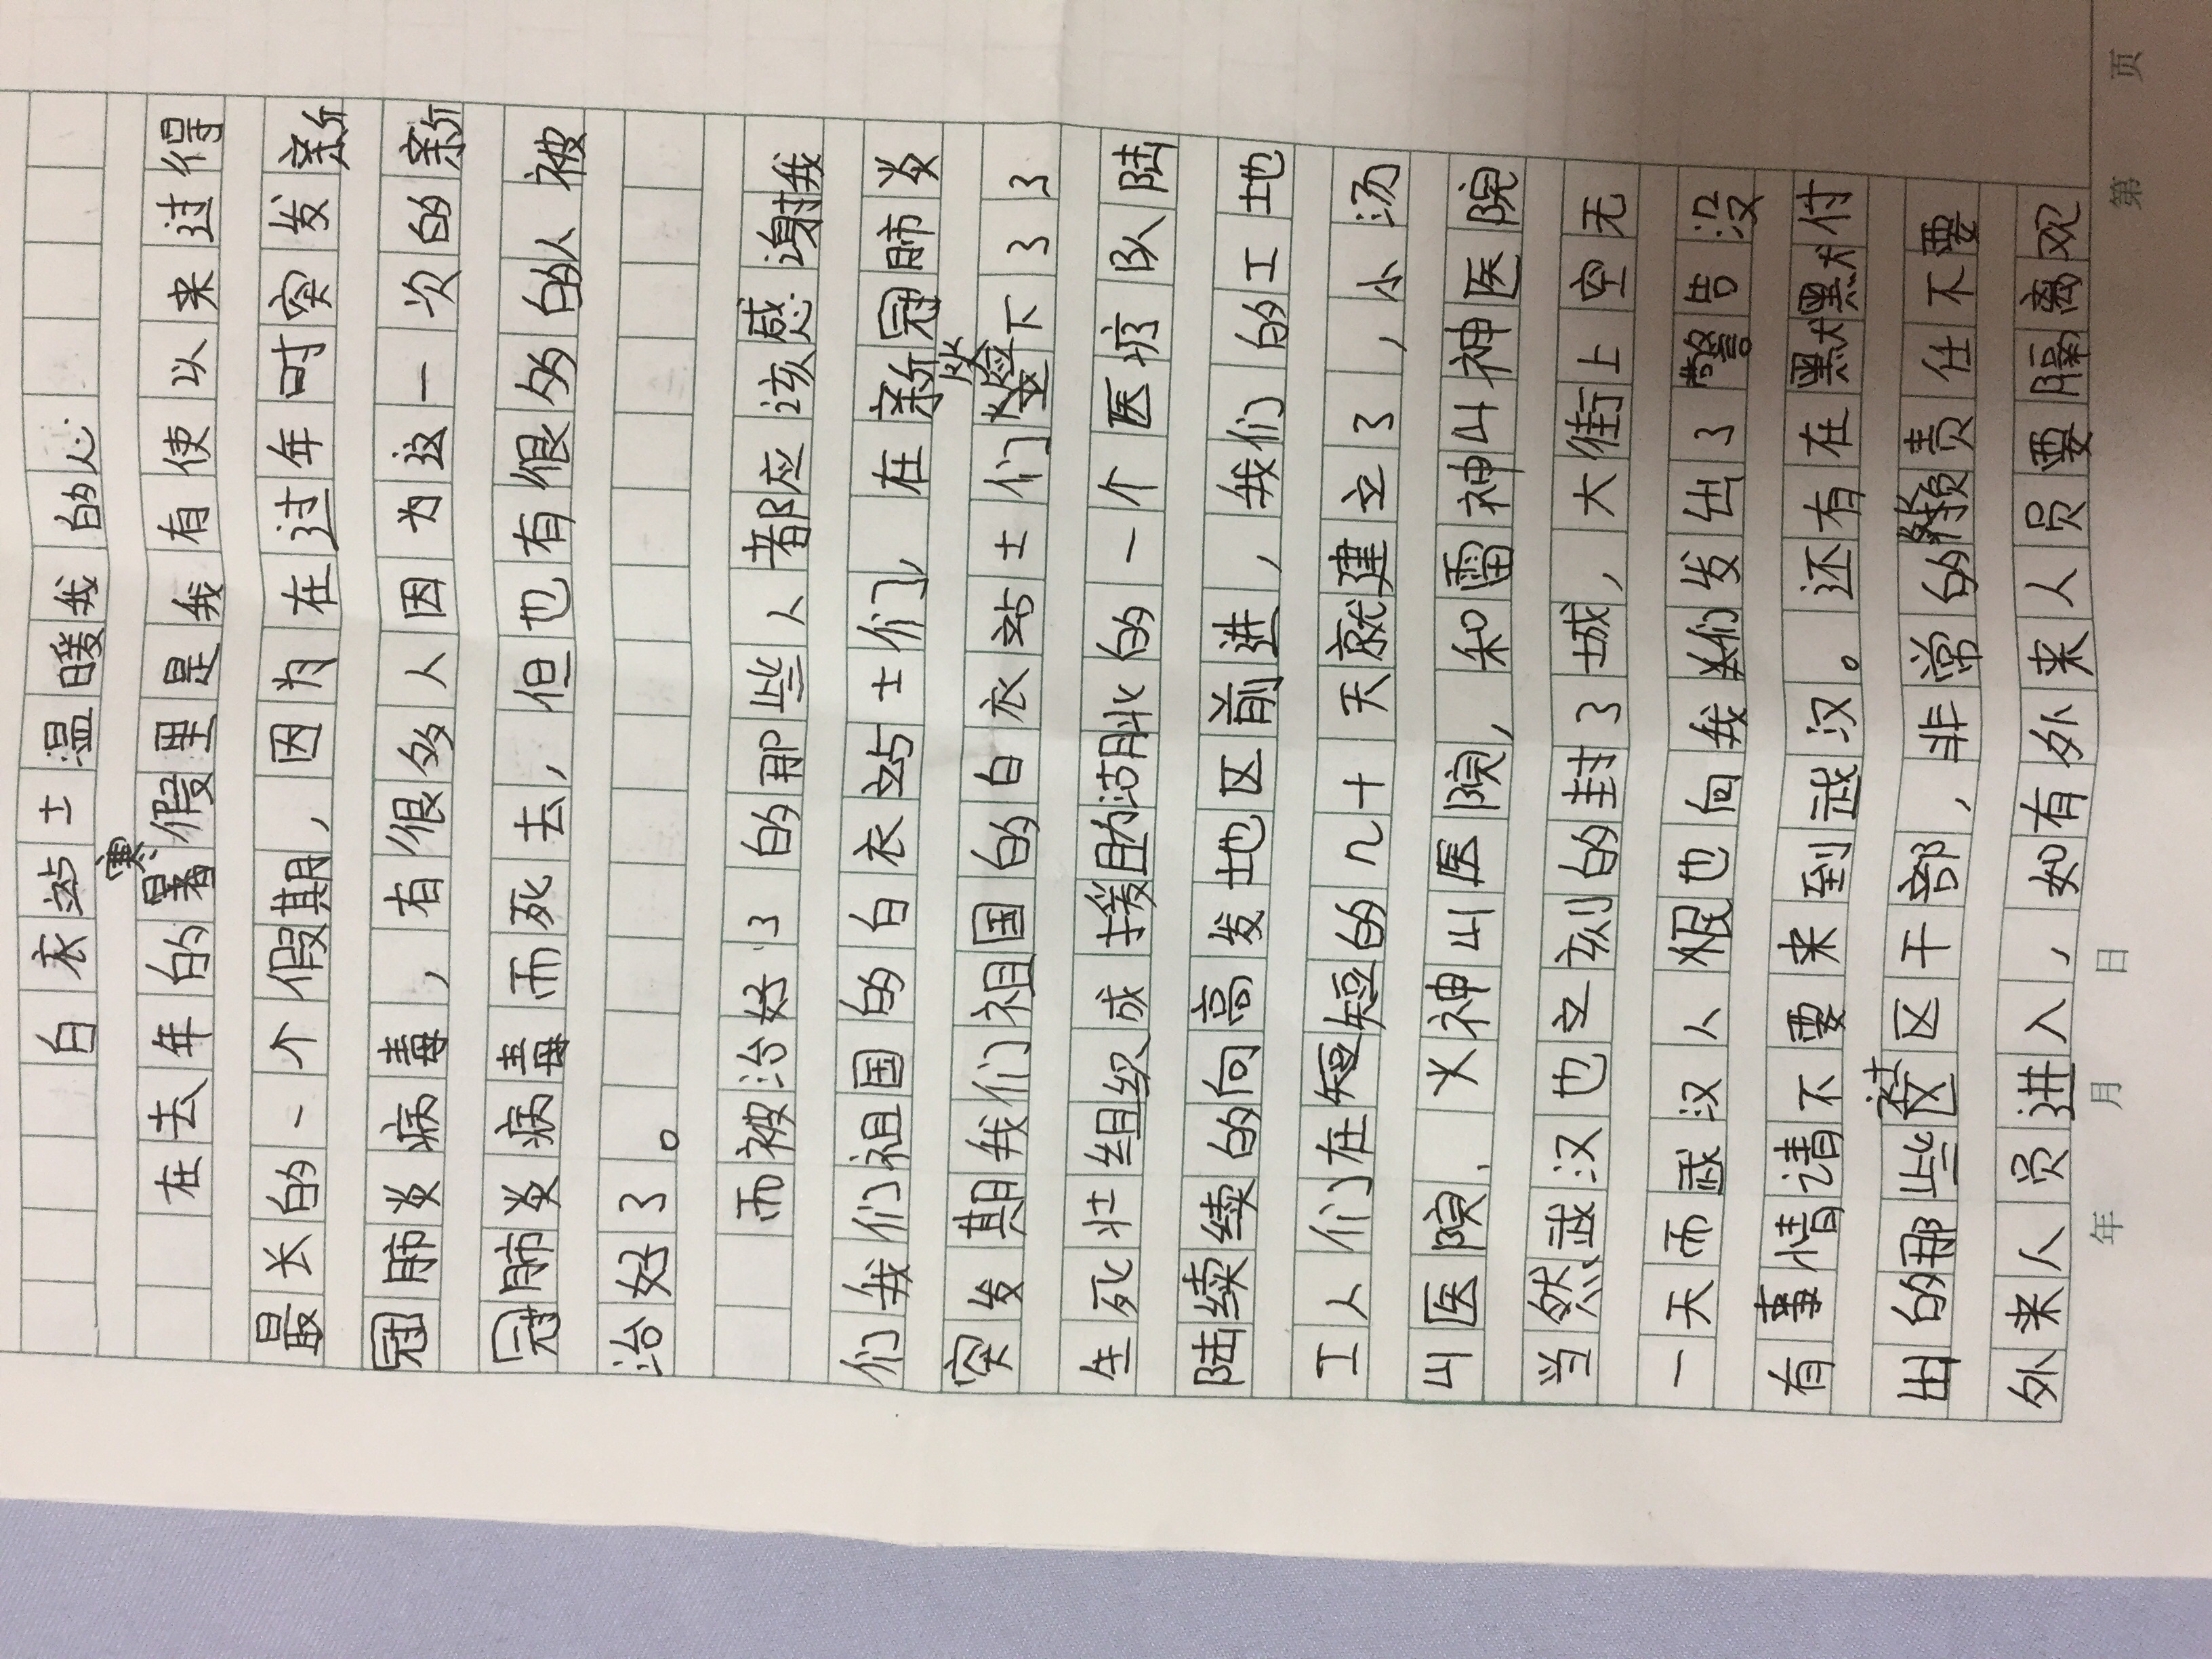 白衣站士温暖我的心
在去年的寒假里是我有使以来过得
最长的一个假期，因为在过年时突发新
冠肺炎病毒，有很多人因为这一次的新
冠肺炎病毒而死去，但也有很多的人被
治好了。
而被治好了的那些人都应该感谢我
们我们祖国的白衣站士们，在新冠肺炎
突发期我们祖国的白衣站士们签下了了
生死壮组织成援助湖北的一个医疗队陆
陆续续的向高发地区前进，我们的工地
工人们在短短的几十天就建立了，小汤
山医院.火神山医院，和雷神山神医院
当然武汉也立刻的封了城，大街上空无
一天而武汉人民也向我们发出了警告没
有事情请不要来到武汉。还有在默默付
出的那些社区干部，非常的负责任不要
外来人员进入，如有外来人员要隔离观
年 月 日 第 页